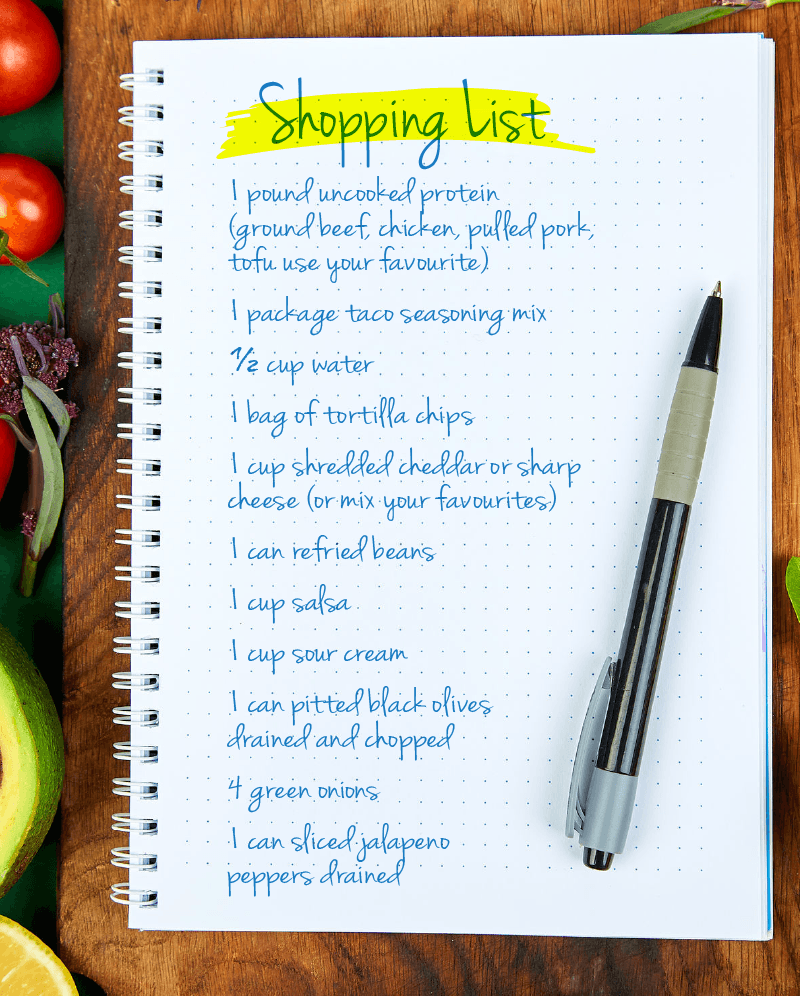 Shopping List
1 pound uncooked protein
(ground beef, chicken, pulled pork,
tofu use your favourite)
1 package taco seasoning mix
1/2 cup water
1 bag of tortilla chips
1 cup shredded cheddar or sharp
cheese (or mix your favourites)
1 can refried beans
1 cup salsa
1 cup sour cream
1 can pitted black olives
drained and chopped
4 green onions
1 can sliced jalapeno
peppers drained